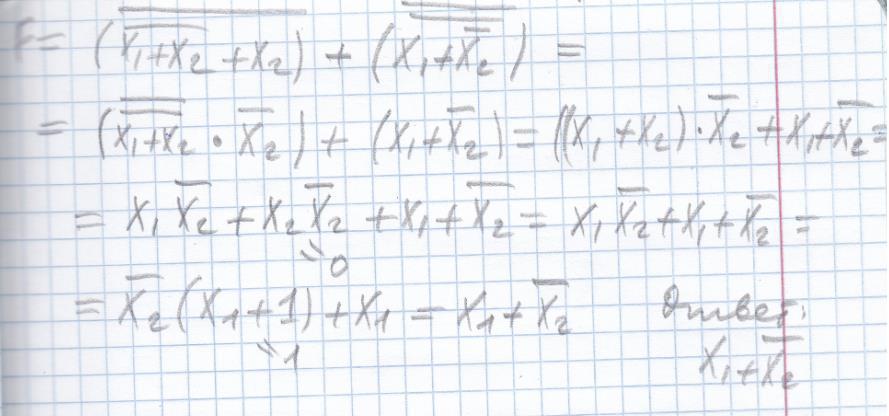 F = (\overline{\overline{x_1+x_2}+x_2}) + (\overline{\overline{x_1+\overline{x_2}}}) =
= (\overline{\overline{x_1+x_2}} · \overline{x_2}) + (x_1+\overline{x_2}) = ((x_1+x_2)·\overline{x_2} + x_1+\overline{x_2} =
= x_1\overline{x_2} + x_2\overline{x_2} + x_1 + \overline{x_2} = x_1\overline{x_2} + x_1 + \overline{x_2} =
=0
= \overline{x_2}(x_1+1) + x_1 = x_1 + \overline{x_2} Ответ:
=1 x_1+\overline{x_2}